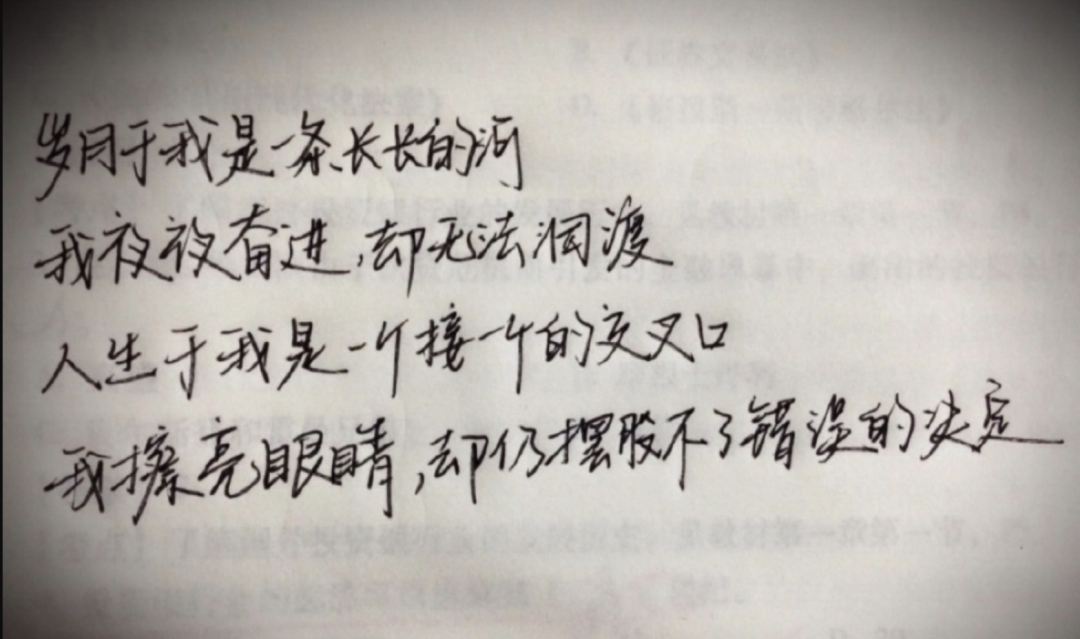 岁月于我是一条长长的河
我夜夜奋进,却无法泅渡
人生于我是一个接一个的交叉口
我擦亮眼睛,却仍摆脱不了错误的决定